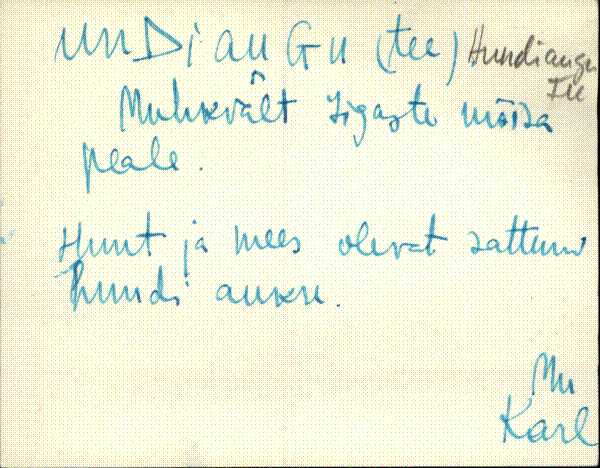 UNDiAUGU (tee) Hundiaugu Tee
Muhkvält Sigaste mõisa
peale.
Hunt ja mees olevat sattunu
hundi auku.
Mu
Karl